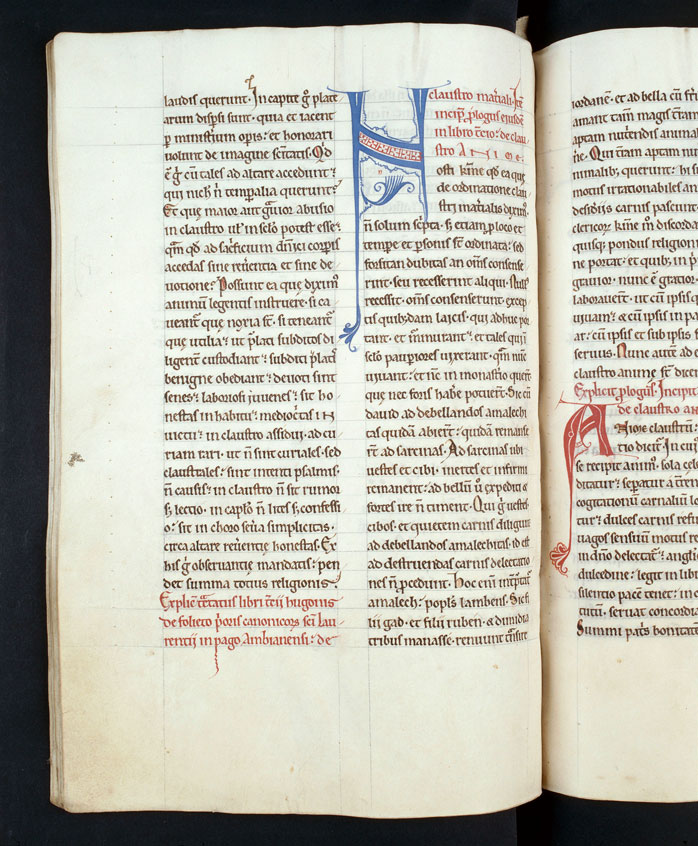 laudis querunt. In capite g̃ plate
arum disp̃si sunt. quia et iacent
p ministium opis. et honorari
uolunt de imagine sc̃itatis. Qd̃
ẽ g̃ cũ tales ad altare accedunt.
qui nich̃ ñ temp̃alia querunt?
Et que maior aut g̃uior abusio
in claustro ut in sc̃lo potest esse.
qm̃ qd̃ ad sac̃ficium dñici corpis
accedas sine reũentia et sine de
uotione? Possunt ea que diximꝰ
animũ legentis instruere. si ca
ueant̃ que noxia st̃. si teneant̃
que utilia. ut p̃lati subditos di
ligent̃ custodiant. subditi p̃latꝭ
benigne obediant. deuoti sint
senes. laboriosi iuuenes. sit ho
nestas in habitu. mediocritas in
uictu. in claustro assidui. ad cu
riam rari. ut ñ sint curiales. sed
claustrales. sint intenti psalmis.
ñ causis. in claustro ñ sit rumor
sꝫ lectio. in capl̃o ñ lites sꝫ confessi
o. sit in choro seria simplicitas.
circa altare reũentie honestas. Ex
his g̃ obseruantie mandatis. pen
det summa totius religionis.
Explic̃ tractatus libri tc̃ii hugonis
de folieto p̃oris canonicoꝝ sc̃i lau
rentii in pago Ambianensi. de
claustro mat̃iali. Itẽ
incip̃ plogus eiusdẽ
in libro tc̃io. de clau
stro Anime.
Post kñe q̃ ea que
de ordinatione clau
stri mat̃ialis diximꝰ
ñ solum septa. sꝫ etiam p loco et
tempe et psonis st̃ ordinata. sed
forsitan dubitas an om̃s consense
runt. seu recesserunt aliqui. Null
recessit. om̃s consenserunt. excep
tis quibusdam laicis. qui adhuc por
tant. et m̃murant. et tales qui ĩ
sc̃lo paupiores uixerant. qm̃ nunc
uiuant. et nc̃ in monast̃io querũt
que nec foris habẽ potuert̃. Sic cũ
dauid ad debellandos amalechi
tas quidã abiert̃. quidã remanse
rt̃ ad sarcinas. Ad sarcinas ubi
uestes et cibi. inertes et infirmi
remanent. ad bellũ u̾ expediti &
fortes ire ñ timent. Qui g̃ uestes
cibos. et quietem carnis diligunt
ad debellandos amalechitas. id est
ad destruendas carnis delectatio
nes ñ pcedunt. Hoc enĩ int̃ptat̃
amalech. popls̃ lambens. Sic fi
lii gad. et filii ruben. & dimidia
tribus manasse. renuunt t̃nsire
iordanẽ. et ad bella cũ
amant tam̃ magis t̃nsit
aptam nut̃endis animal
Qui t̃nsm aptam
nimalibꝫ. querunt.
motus irrationabiles
desidiis carnis pascunt
clericoꝝ kñe
quisqꝫ pondus religion
ne portat. et quibꝫ. in
grauior. nunc ẽ gratior.
laborauert̃. ut cũ ipsis
uiuant. & cũ ipsis in pa
ar. cũ ipsis et sub ipsis
seruus. Nunc autẽ ad
claustro anime st̃ dicen
Explicit plogus. Incipit
de claustro an
Anime claustrũ.
tio dicit̃. In
se recipit animꝰ. sola
ditatur. sepatur a
cogitationũ carnaliũ
tur. dulces carnis
uagos sensuum motus
in dño delectat̃.
dulcedine. legit in
silentio pacẽ tenet. in
tutũ. seruat concordia
Summi pat̃s bonitatẽ